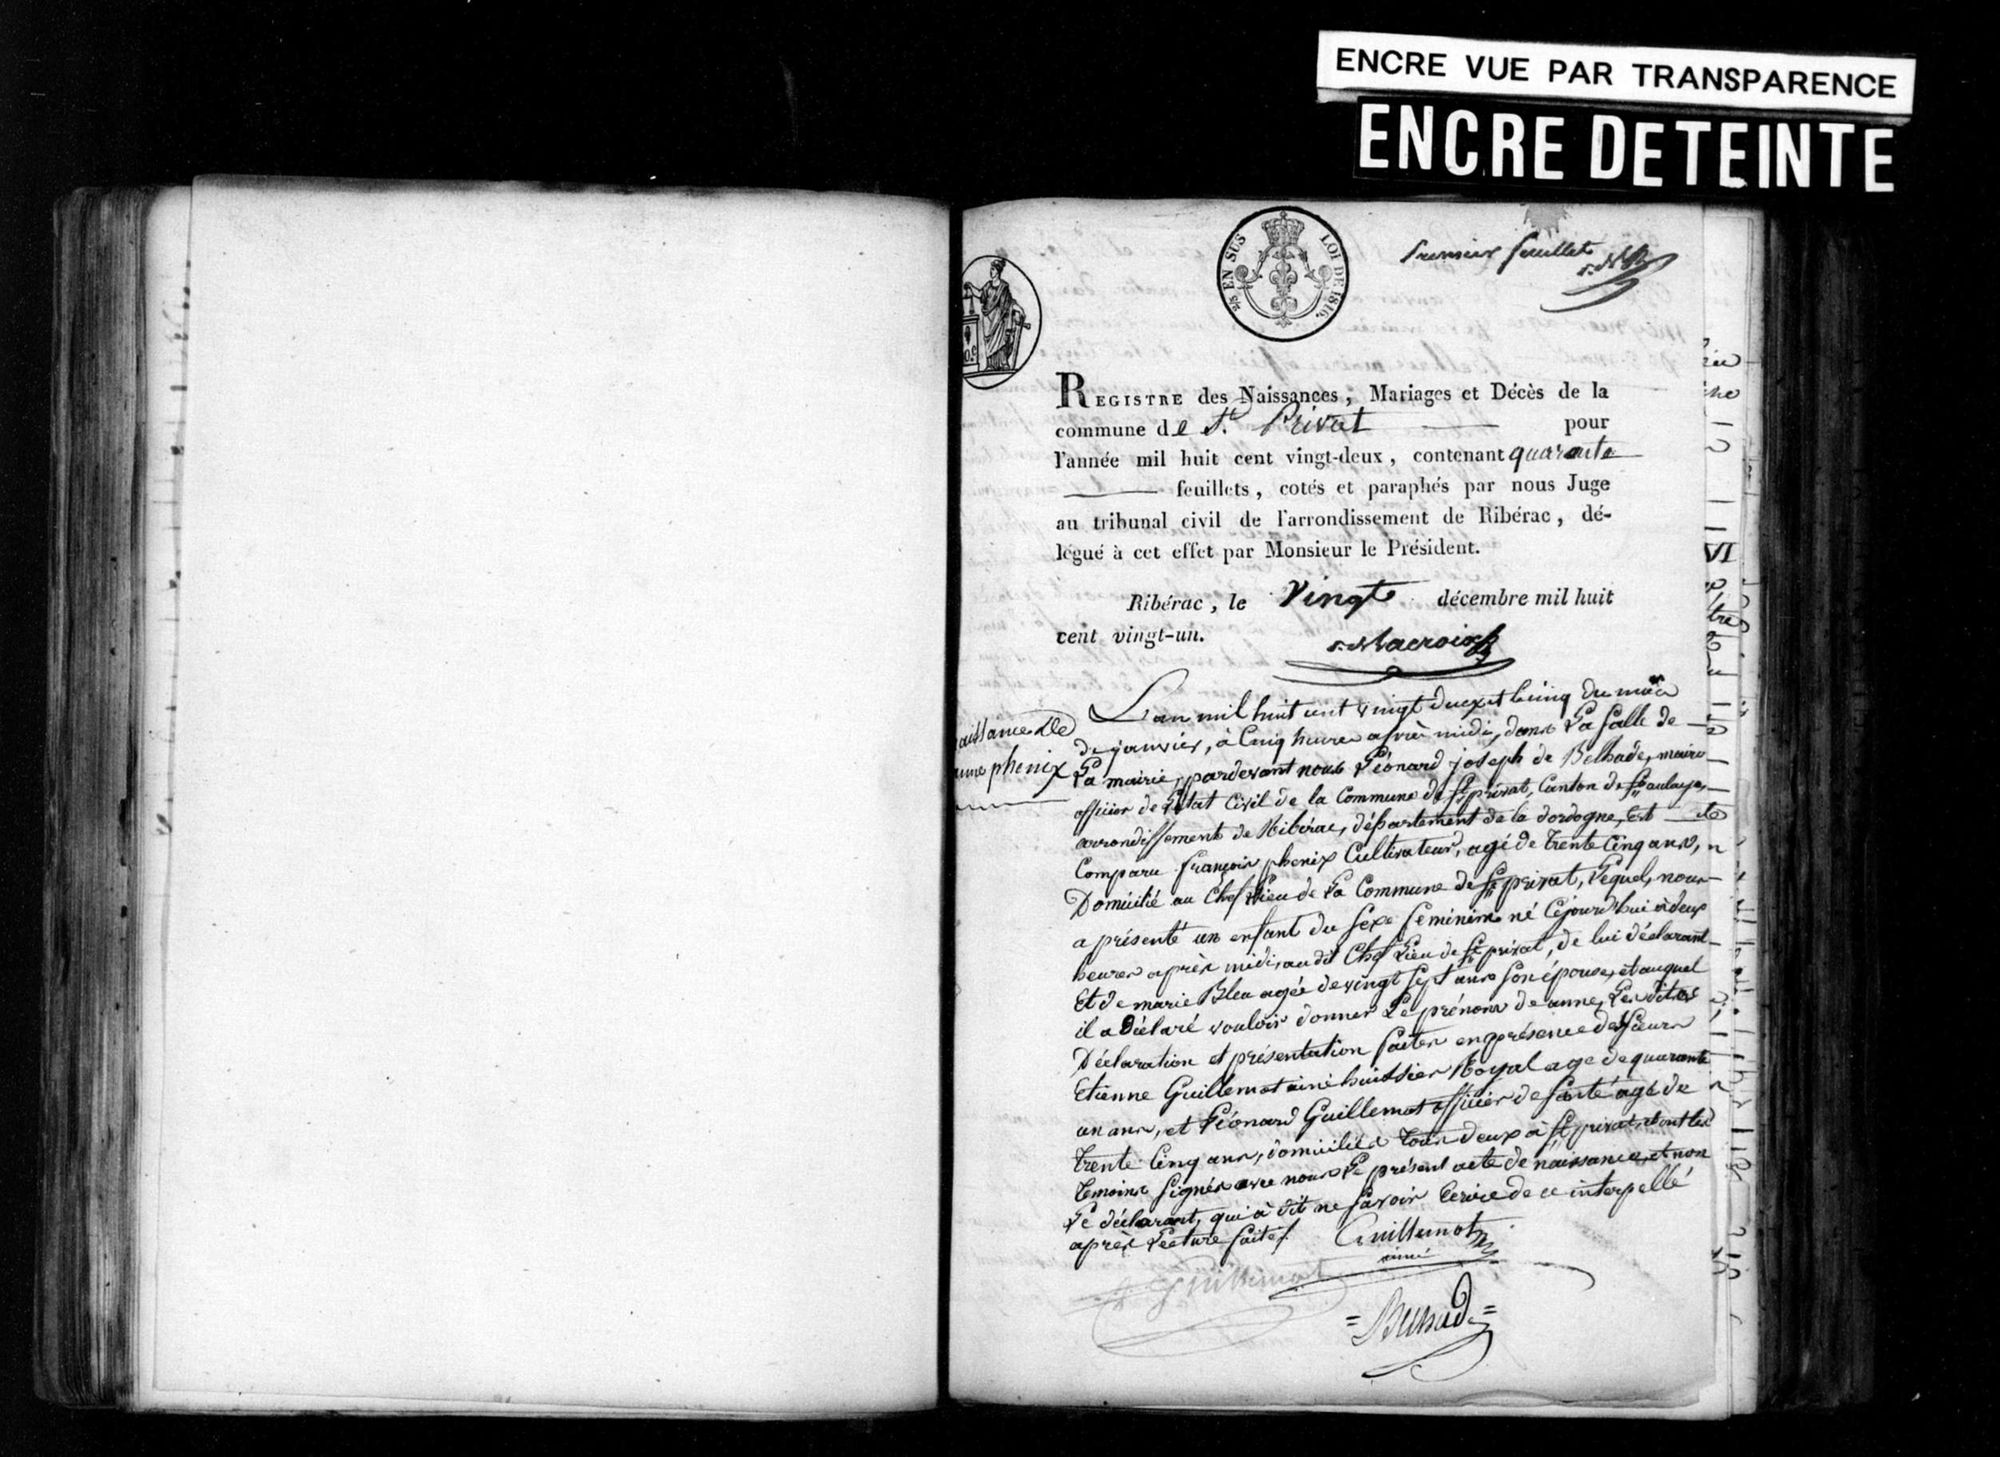 ENCRE VUE PAR TRANSPARENCE
ENCRE DETEINTE
EN SUS LOI DE 1816.
Premier feuillet
REGISTRE des Naissances, Mariages et Décès de la
commune de St. Privat pour
l'année mil huit cent vingt-deux, contenant quarante
feuillets, cotés et paraphés par nous Juge
au tribunal civil de l'arrondissement de Ribérac, dé-
légué à cet effet par Monsieur le Président.
Ribérac, le Vingt décembre mil huit
cent vingt-un.
Lacroix
aissance de
anne phenix
L'an mil huit cent vingt deux et le cinq du mois
de janvier, à Cinq heures après midi, dans La salle de
La mairie, pardevant nous Léonard joseph de Belhade, maire
officier de L'état Civil de la Commune de St privat, Canton de St aulaye,
arrondissement de Ribérac, département de la dordogne, Est
Comparu françois phenix Cultivateur, agé de trente Cinq ans,
Domicilié au Chef Lieu de La Commune de St privat, Lequel, nous
a présenté un enfant du sexe feminin né Cejourd'hui à deux
heures après midi, audit Chef Lieu de St privat, de lui déclarant
Et de marie Bleu agée de vingt sept ans son épouse, et auquel
il a Déclaré vouloir donner Le prénom de anne, Les dites
Déclaration et présentation faites en présence des sieurs
Etienne Guillemot ainé huissier Royal age de quarante
un ans, et Léonard Guillemot officier de santé agé de
trente Cinq ans, domiciliés tous deux à St privat, dont les
temoins signés avec nous Le présent acte de naissance, et non
Le déclarant, qui à dit ne savoir Ecrire de ce interpellé
après Lecture faite.
Guillemot
ainé
Guillemot
= Belhade =